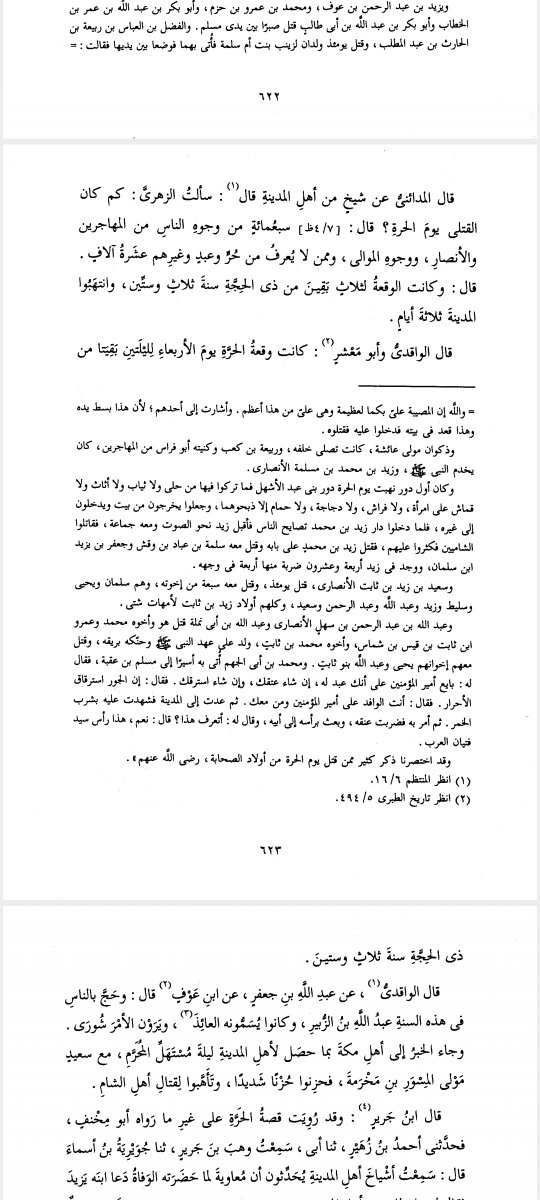 ويزيد بن عبد الرحمن بن عوف ، ومحمد بن عمرو بن حزم ، وأبو بكر بن عبد الله بن عمر بن
الخطاب وأبو بكر بن عبد الله بن أبى طالب قتل صبرًا بين يدى مسلم . والفضل بن العباس بن ربيعة بن
الحارث بن عبد المطلب ، وقتل يومئذ ولدان لزينب بنت أم سلمة فأُتى بهما فوضعا بين يديها فقالت : =
٦٢٢
قال المدائنىُّ عن شيخٍ من أهلِ المدينةِ قال(١) : سألتُ الزهرىَّ : كم كان
القتلى يومَ الحرةِ ؟ قال : [٤/٧ظ] سبعُمائةٍ من وجوهِ الناسِ من المهاجرين
والأنصارِ ، ووجوهِ الموالى ، وممن لا يُعرفُ من حُرٍّ وعبدٍ وغيرِهم عشَرةُ آلافٍ .
قال : وكانت الوقعةُ لثلاثٍ بَقِينَ من ذى الحِجَّةِ سنةَ ثلاثٍ وستِّين ، وانتهَبُوا
المدينةَ ثلاثةَ أيامٍ .
قال الواقدىُّ وأبو مَعْشرٍ(٢) : كانت وقعةُ الحرَّةِ يومَ الأربعاءِ لِليْلَتَينِ بَقِيَتا من
= والله إن المصيبة علىّ بكما لعظيمة وهى علىّ من هذا أعظم . وأشارت إلى أحدهم ؛ لأن هذا بسط يده
وهذا قعد فى بيته فدخلوا عليه فقتلوه .
وذكوان مولى عائشة ، كانت تصلى خلفه ، وربيعة بن كعب وكنيته أبو فراس من المهاجرين ، كان
يخدم النبى ﷺ ، وزيد بن محمد بن مسلمة الأنصارى .
وكان أول دور نهبت يوم الحرة دور بنى عبد الأشهل فما تركوا فيها من حلى ولا ثياب ولا أثاث ولا
قماش على امرأة ، ولا فراش ، ولا دجاجة ، ولا حمام إلا ذبحوهما ، وجعلوا يخرجون من بيت ويدخلون
إلى غيره ، فلما دخلوا دار زيد بن محمد تصايح الناس فأقبل زيد نحو الصوت ومعه جماعة ، فقاتلوا
الشاميين فكثروا عليهم ، فقتل زيد بن محمد على بابه وقتل معه سلمة بن عباد بن وقش وجعفر بن يزيد
ابن سلمان، ووجد فى زيد أربعة وعشرون ضربة منها أربعة فى وجهه .
وسعيد بن زيد بن ثابت الأنصارى ، قتل يومئذ ، وقتل معه سبعة من إخوته ، وهم سلمان ويحيى
وسليط وزيد وعبد الله وعبد الرحمن وسعيد ، وكلهم أولاد زيد بن ثابت لأمهات شتى .
وعبد الله بن عبد الرحمن بن سهل الأنصارى وعبد الله بن أبى نملة قتل هو وأخوه محمد وعمرو
ابن ثابت بن قيس بن شماس، وأخوه محمد بن ثابت ، ولد على عهد النبى ﷺ وحنّكه بريقه ، وقتل
معهم إخوانهم يحيى وعبد الله بنو ثابت . ومحمد بن أبى الجهم أُتى به أسيرًا إلى مسلم بن عقبة ، فقال
له : بايع أمير المؤمنين على أنك عبد له ، إن شاء عتقك، وإن شاء استرقك . فقال : إن الجور استرقاق
الأحرار . فقال : أنت الوافد على أمير المؤمنين ومن معك . ثم عدت إلى المدينة فشهدت عليه بشرب
الخمر . ثم أمر به فضربت عنقه ، وبعث برأسه إلى أبيه ، وقال له : أتعرف هذا ؟ قال : نعم ، هذا رأس سيد
فتيان العرب .
وقد اختصرنا ذكر كثير ممن قتل يوم الحرة من أولاد الصحابة ، رضى الله عنهم » .
(١) انظر المنتظم ١٦/٦.
(٢) انظر تاريخ الطبرى ٤٩٤/٥.
٦٢٣
ذى الحِجَّةِ سنةَ ثلاثٍ وستينَ .
قال الواقدىُّ(١) ، عن عبدِ اللَّهِ بنِ جعفرٍ ، عن ابنِ عَوْفٍ(٢) قال : وحَجَّ بالناسِ
فى هذه السنةِ عبدُ اللَّهِ بنُ الزُّبيرِ ، وكانوا يُسَمُّونه العائذَ(٣) ، ويَرَوْن الأمْرَ شُورَى .
وجاء الخبرُ إلى أهلِ مكةَ بما حصَل لأهلِ المدينةِ ليلةَ مُسْتَهَلِّ المُحَرَّمِ ، مع سعيدٍ
مَوْلى المِسْوَرِ بنِ مَخْرَمةَ ، فحزِنوا حُزْنًا شديدًا ، وتَأَهَّبوا لِقتالِ أهلِ الشامِ .
قال ابنُ جَريرٍ(٤) : وقد رُوِيَت قصةُ الحَرَّةِ على غيرِ ما رَواه أبو مِخْنفٍ ،
فحدَّثنى أحمدُ بنُ زُهَيْرٍ ، ثنا أبى ، سَمِعْتُ وهبَ بنَ جَريرٍ ، ثنا جُوَيْرِيَةُ بنُ أسماءَ
قال : سَمِعْتُ أشْياخَ أهلِ المدينةِ يُحَدِّثون أن مُعاويةَ لما حَضَرَته الوَفاةُ دَعا ابنَه يَزيدَ